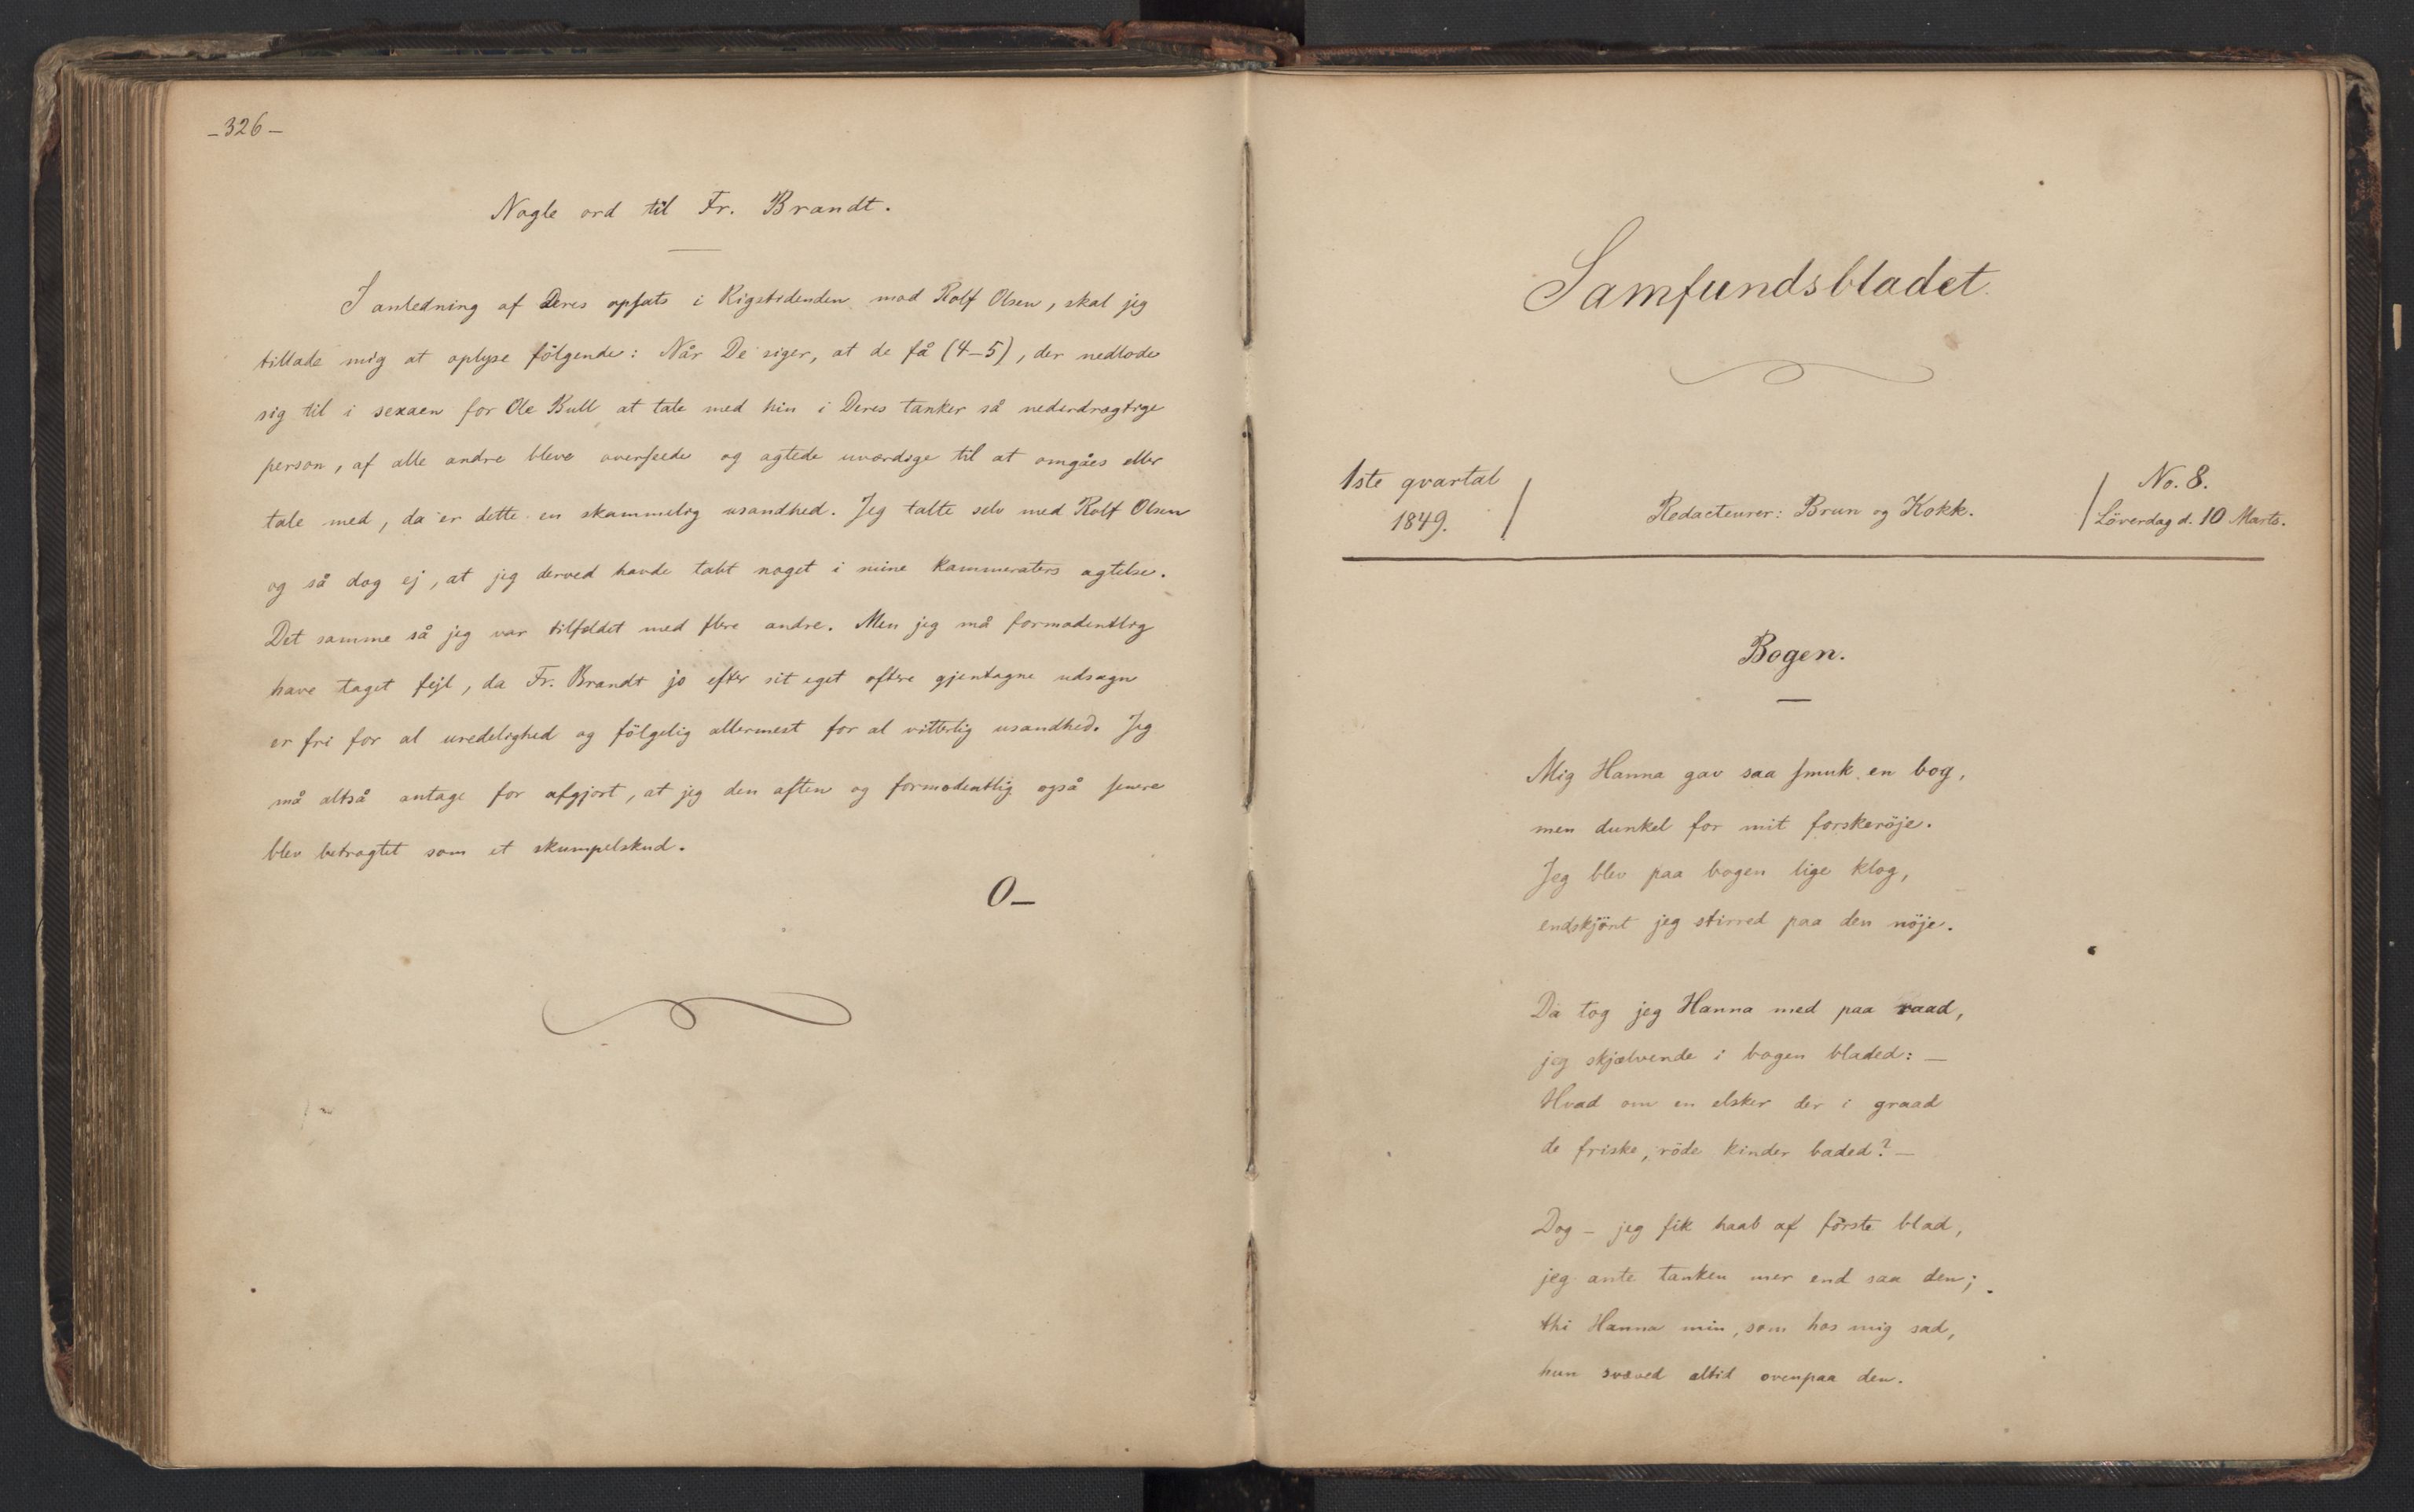 – 326 –
Nogle ord til Fr. Brandt.
I anledning af Deres opsats i Rigstidenden mod Rolf Olsen, skal jeg
tillade mig at oplyse følgende: Når De siger, at de få (4–5), der nedlode
sig til i sexaen for Ole Bull at tale med hin i Deres tanker så nederdrægtige
person, af alle andre bleve overseede og agtede uværdige til at omgåes eller
tale med, da er dette en skammelig usandhed. Jeg talte selv med Rolf Olsen
og så dog ej, at jeg derved havde tabt noget i mine kammeraters agtelse.
Det samme så jeg var tilfældet med flere andre. Men jeg må formodentlig
have taget fejl, da Fr. Brandt jo efter sit eget oftere gjentagne udsagn
er fri for al uredelighed og fölgelig allermest for al vitterlig usandhed. Jeg
må altså antage for afgjort, at jeg den aften og formodentlig også senere
blev betragtet som et skumpelskud.
O–
Samfundsbladet.
1ste qvartal
1849.
Redacteurer: Brun og Kokk.
No. 8.
Löverdag d. 10 Marts.
Bogen.
Mig Hanna gav saa smuk en bog,
men dunkel for mit forskeröje.
Jeg blev paa bogen lige klog,
endskjönt jeg stirred paa den nöje.
Da tog jeg Hanna med paa raad,
jeg skjælvende i bogen bladed: –
Hvad om en elsker der i graad
de friske, röde kinder baded? –
Dog – jeg fik haab af förste blad,
jeg ante tanken mer end saa den;
thi Hanna min, som hos mig sad,
hun svæved altid ovenpaa den.